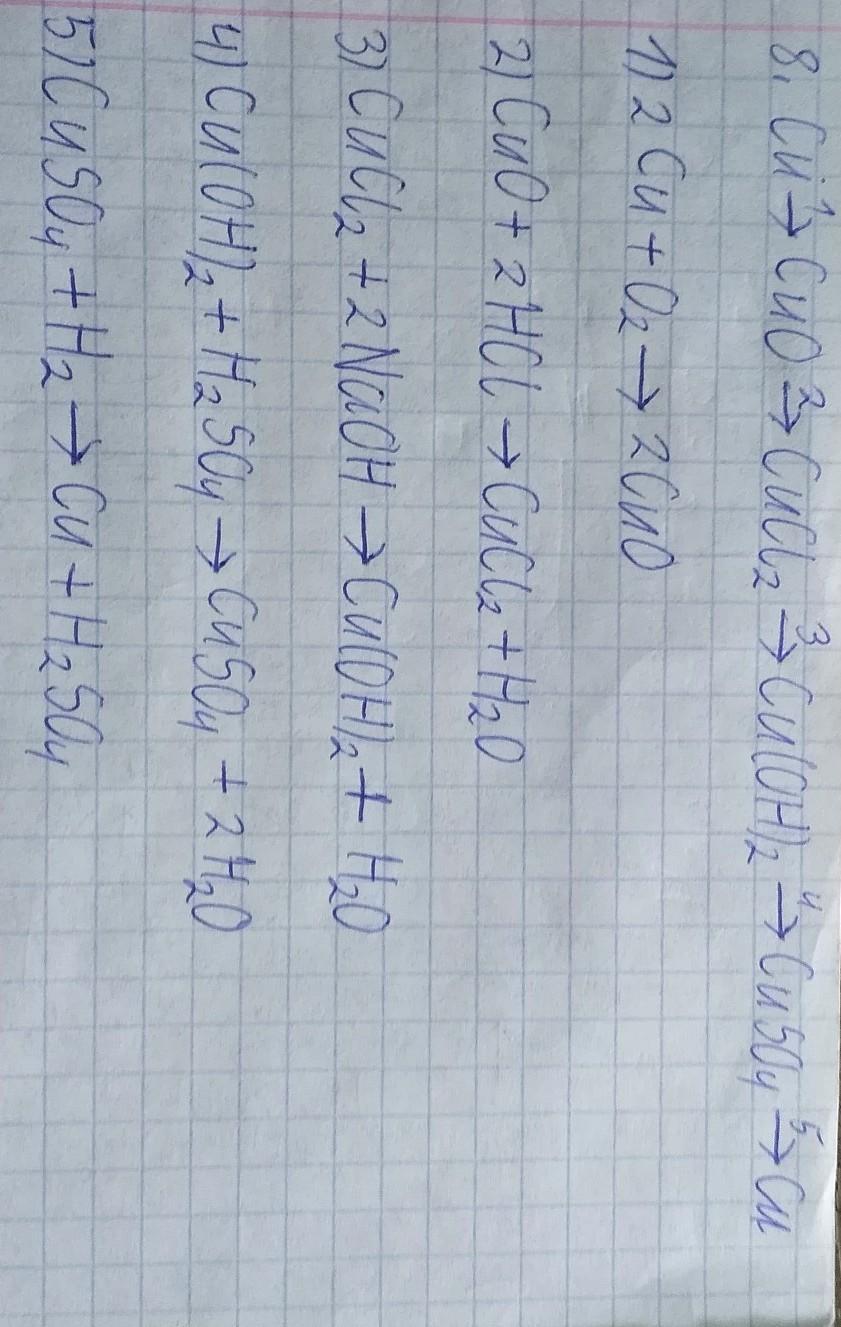 8. Cu →¹ CuO →² CuCl₂ →³ Cu(OH)₂ →⁴ CuSO₄ →⁵ Cu
1) 2Cu + O₂ → 2CuO
2) CuO + 2HCl → CuCl₂ + H₂O
3) CuCl₂ + 2NaOH → Cu(OH)₂ + H₂O
4) Cu(OH)₂ + H₂SO₄ → CuSO₄ + 2H₂O
5) CuSO₄ + H₂ → Cu + H₂SO₄